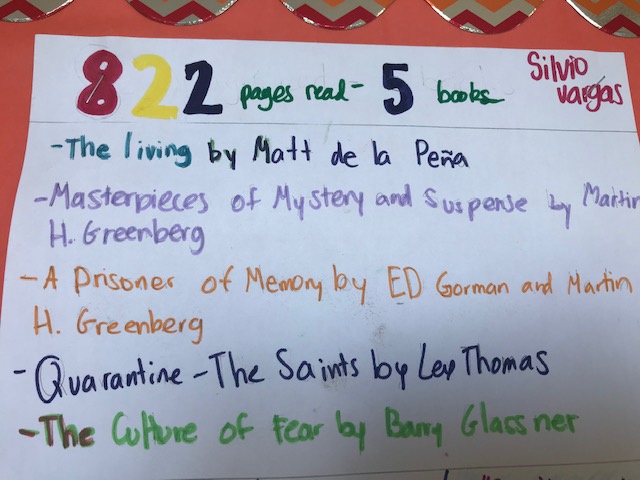 822 pages read- 5 books
Silvio
Vargas
-The living by Matt de la Peña
-Masterpieces of Mystery and Suspense by Martin
H. Greenberg
-A Prisoner of Memory by ED Gorman and Martin
H. Greenberg
-Quarantine -The Saints by Lex Thomas
-The Culture of Fear by Barry Glassner